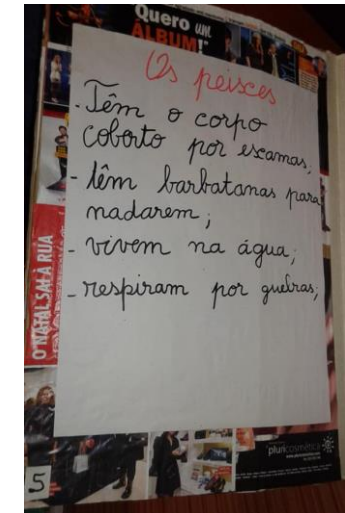 Quero um
ÁLBUM!"
Os peisces
- Têm o corpo
coberto por escamas;
- têm barbatanas para
nadarem;
- vivem na água;
- respiram por guelras;
O NATAL SAI À RUA
pluricosmética
5